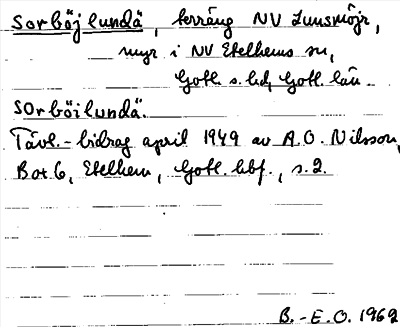 Sorböjlundä, terräng NV Lunsmöjr,
myr i NV Etelhems sn,
Gotl. s. hd, Gotl. län.
Sorböilundä.
Tävl.-bidrag april 1949 av A.O. Nilsson,
Box 6, Etelhem, Gotl. hbf., s. 2.
B.-E.O. 1969